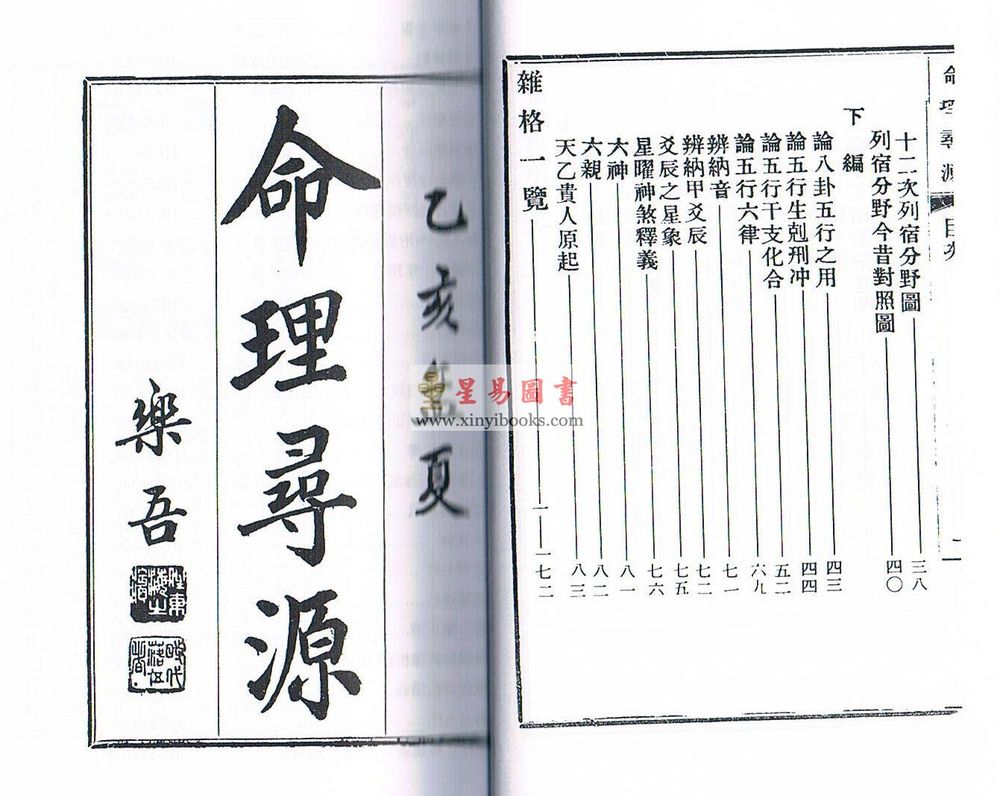 命理尋源 目次
十二次列宿分野圖 三八
列宿分野今昔對照圖 四〇
下編
論八卦五行之用 四三
論五行生剋刑冲 四四
論五行干支化合 五二
論五行六律 六九
辨納音 七一
辨納甲爻辰 七二
爻辰之星象 七五
星曜神煞釋義 七六
六神 八一
六親 八二
天乙貴人原起 八三
雜格一覽 一——一七二
乙亥 夏
命理尋源
樂吾
星易圖書
www.xinyibooks.com